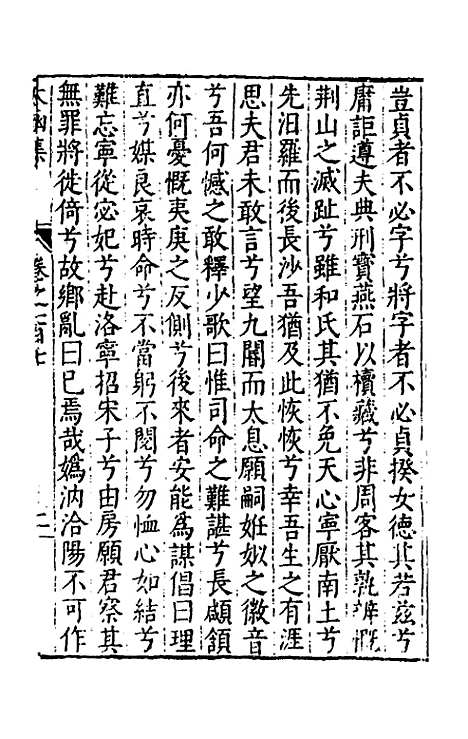 豈貞者不必字兮將字者不必貞揆女德其若茲兮
庸詎遵夫典刑寶燕石以櫝藏兮非周客其孰辨慨
荆山之滅趾兮雖和氏其猶不免天心寧厭南土兮
先汨羅而後長沙吾猶及此恢恢兮幸吾生之有涯
思夫君未敢言兮望九閽而太息願嗣姙姒之徽音
兮吾何憾之敢釋少歌曰惟司命之難諶兮長顑頷
亦何憂慨夷庚之反側兮後來者安能爲謀倡曰理
直兮媒良哀時命兮不當躬不閱兮勿恤心如結兮
難忘寧從宓妃兮赴洛寧招宋子兮由房願君察其
無罪將徙倚兮故鄉亂曰已焉哉嬀汭洽陽不可作
太函集 卷之一百七